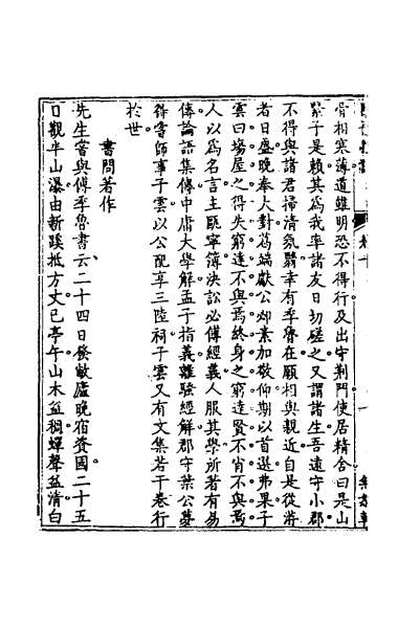 骨相寒薄道雖明恐不得行及出守荆門使居精舍曰是山
紫子是賴其為我率諸友日切磋之又謂諸生吾遠守小郡
不得與諸君掃清氛翳幸有季魯在願相與親近自是從游
者日盛晚奉大對為端獻公部業加敬仰期以首選弗果子
雲曰場屋之得失窮達不與焉終身之窮達賢不肖不與焉
人以為名言主甌寧簿決訟必傅經義人服其學所著有易
傳論語集傳中庸大學解孟子指義離騷經解郡守葉公夢
得嘗師事子雲以公配享三陸祠子雲又有文集若干卷行
於世
書問著作
先生嘗與傅季魯書云二十四日發敝廬晚宿資國二十五
日觀半山瀑由新蹊抵方丈已亭午山木益稠蟬聲益清白